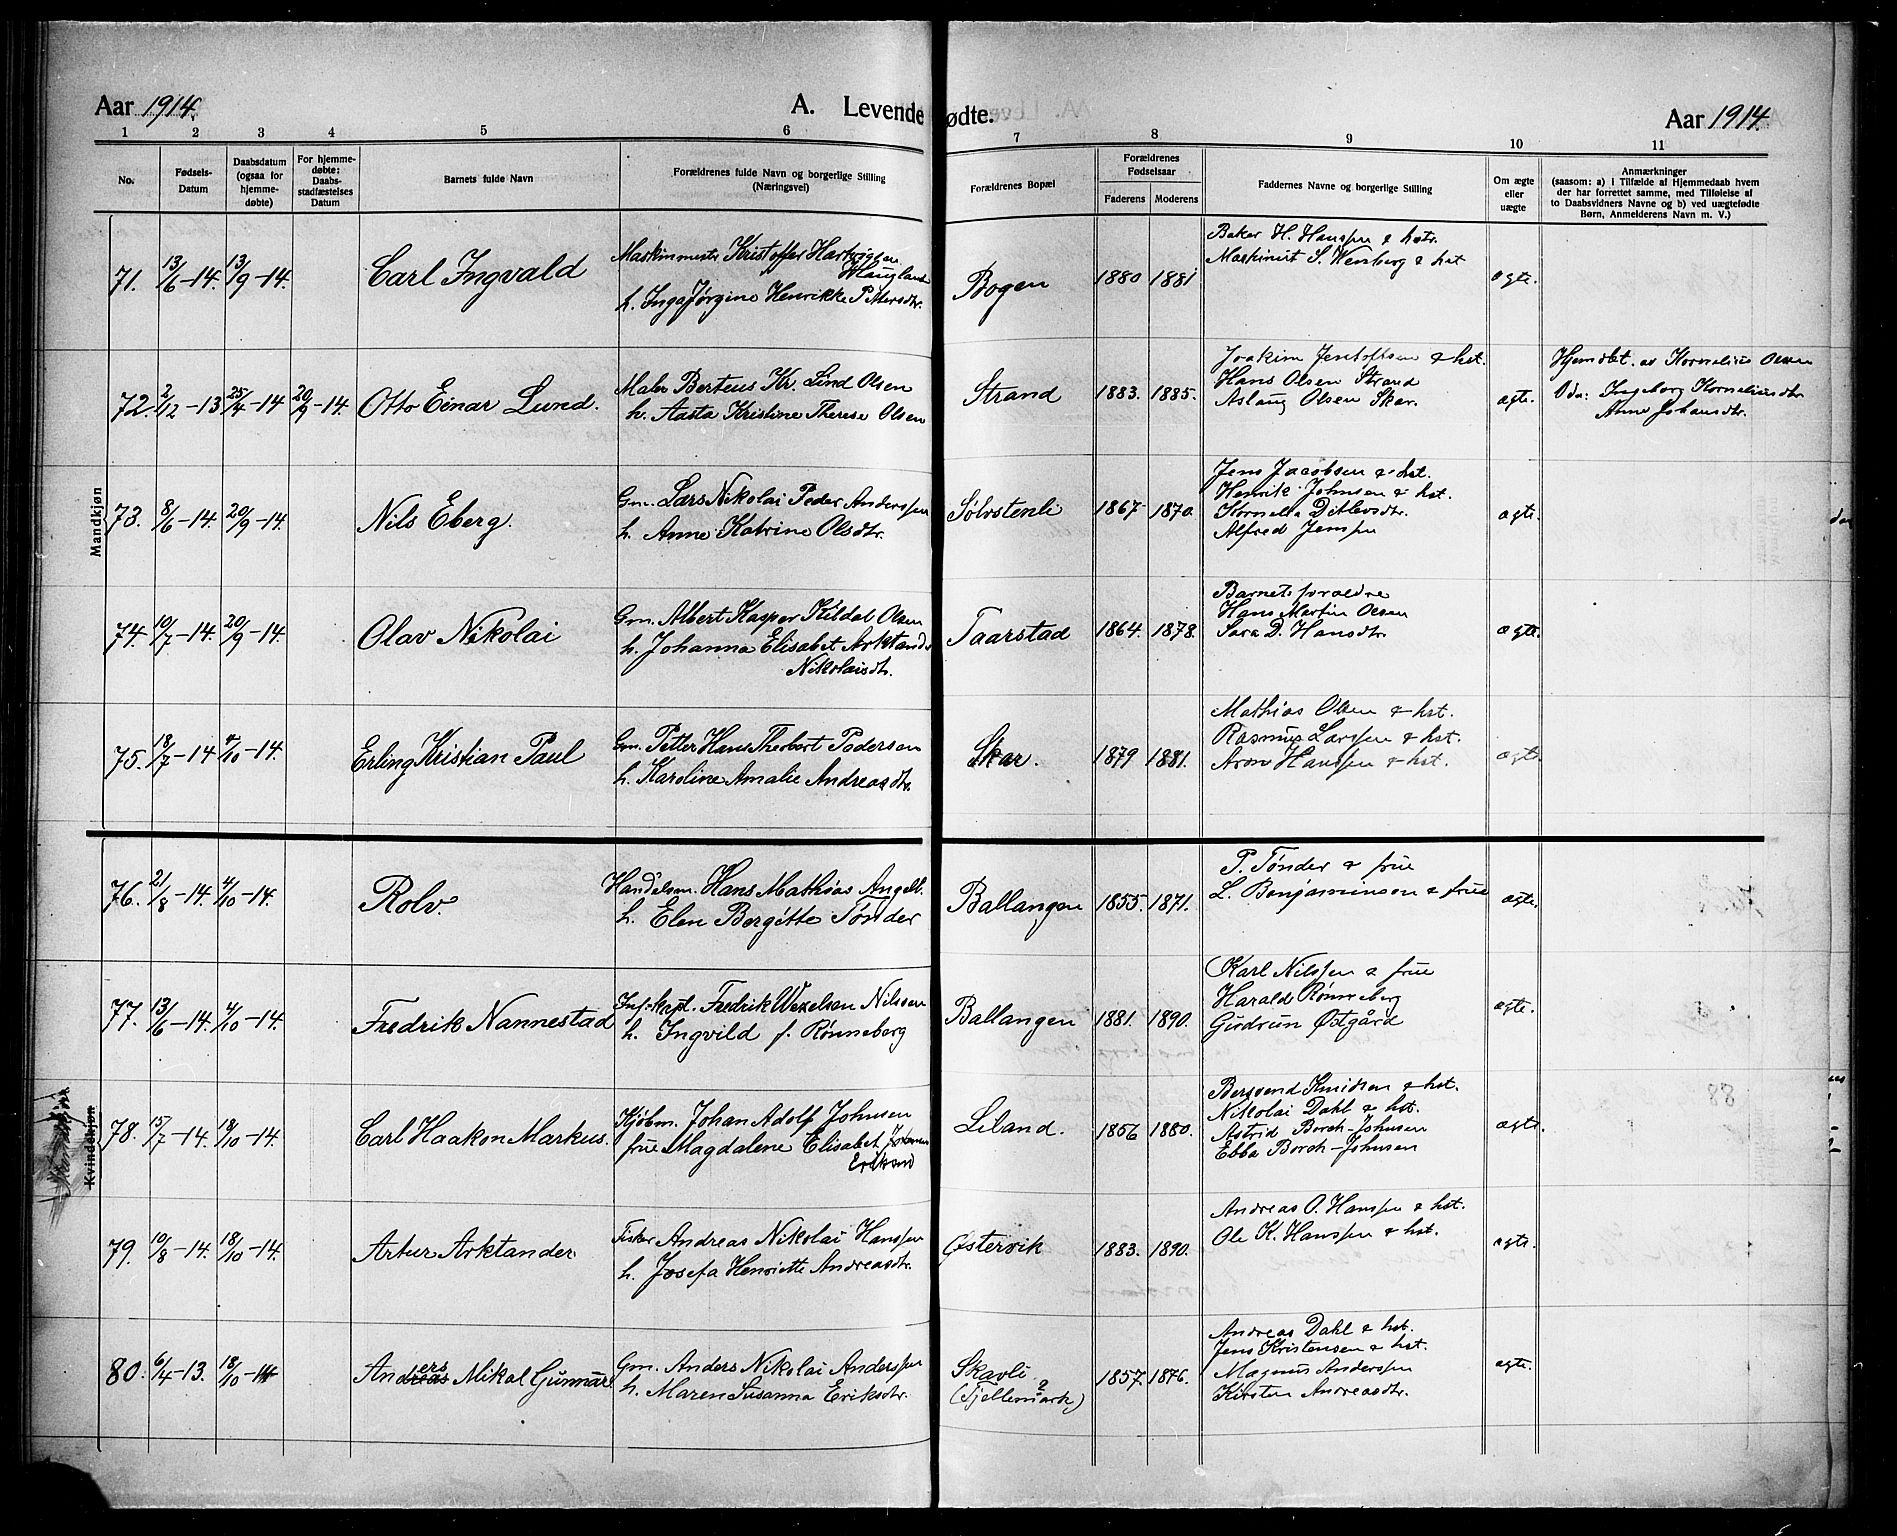 Aar 1914.
A. Levende
ødte.
Aar 1914
1 2 3 4 5 6 7 8 9 10 11
No.
Fødsels-
Datum
Daabsdatum
(ogsaa for
hjemme-
døbte)
For hjemme-
døbte:
Daabs-
stadfæstelses
Datum
Barnets fulde Navn
Forældrenes fulde Navn og borgerlige Stilling
(Næringsvei)
Forældrenes Bopæl
Forældrenes
Fødselsaar
Faderens Moderens
Faddernes Navne og borgerlige Stilling
Om ægte
eller
uægte
Anmærkninger
(saasom: a) i Tilfælde af Hjemmedaab hvem
der har forrettet samme, med Tilføielse af
to Daabsvidners Navne og b) ved uægtefødte
Børn, Anmelderens Navn m. V.)
Mandkjøn
71. 13/6-14. 13/9-14. Carl Ingvald
Maskinmester Kristoffer Hartvigsen
Haugland
h. Inga Jørgine Henrikke Petersdtr.
Bogen 1880 1881
Baker H. Hanssen & hstr.
Maskinist S. Wenberg & hst
ægte.
72. 2/12-13 25/4-14 20/9-14. Otto Einar Lund.
Maler Berteus Kr. Lind Olsen
h. Aasta Kristine Therese Olsen
Strand 1883. 1885.
Joakim Jentoftsen & hst.
Hans Olsen Strand
Aslaug Olsen Skar.
ægte.
Hjemdbt. av Kornelius Olsen
Vdn: Ingeborg Korneliusdtr
Anne Johansdtr.
73. 8/6-14. 20/9-14 Nils Eberg.
Gm. Lars Nikolai Peder Anderssen
h. Anne Katrine Olsdtr.
Sølvstenli 1867 1870.
Jens Jacobsen & hst.
Henrik Johnsen & hst.
Kornelia Ditlevsdtr.
Alfred Jenssen
ægte.
74. 10/7-14. 20/9-14. Olav Nikolai
Gm. Albert Kasper Kildal Olsen
h. Johanna Elisabet Arktander
Nikolaisdtr.
Taarstad 1864. 1878.
Barnets forældre
Hans Martin Olsen
Sara D. Hansdtr.
ægte.
75. 18/7-14 4/10-14. Erling Kristian Paul
Gm. Petter Hans Therbert Pedersen
h. Karoline Amalie Andreasdtr.
Skar. 1879 1881.
Mathias Olsen & hst.
Rasmus Larssen & hst.
Aron Hanssen & hst.
ægte.
Kvindekjøn
76. 21/8-14. 4/10-14. Rolv.
Handelsm. Hans Mathias Angell.
h. Elen Bergitte Tønder
Ballangen 1855. 1871.
P. Tønder & frue
L. Benjaminsen & frue
ægte.
77. 13/6-14. 4/10-14. Fredrik Nannestad
Inf.-kapt. Fredrik Wexelsen Nilssen
h. Ingvild f. Rønneberg
Ballangen 1881. 1890.
Karl Nilssen & frue
Harald Rønneberg
Gudrun Østgård
ægte.
78. 15/7-14. 18/10-14. Carl Haakon Markus.
Kjøbm. Johan Adolf Johnsen
frue Magdalene Elisabet
Liland. 1856 1880.
Bersvend Knudsen & hst.
Nikolai Dahl & hst.
Astrid Borch-Johnsen
Ebba Borch-Johnsen
ægte.
79. 10/8-14. 18/10-14. Artur Arktander
Fisker Andreas Nikolai Hanssen
h. Josefa Henriette Andreasdtr.
Østervik 1883. 1890.
Andreas O. Hanssen & hst.
Ole K. Hanssen & hst.
ægte.
80. 6/4-13. 18/10-14 Anders Mikal Gunnar.
Gm. Anders Nikolai Anderssen
h. Maren Susanna Eriksdtr.
Skavli
(Fjellemark)
1857. 1876.
Andreas Dahl & hst.
Jens Kristensen & hst.
Magnus Anderssen
Kirsten Andreasdtr.
ægte.